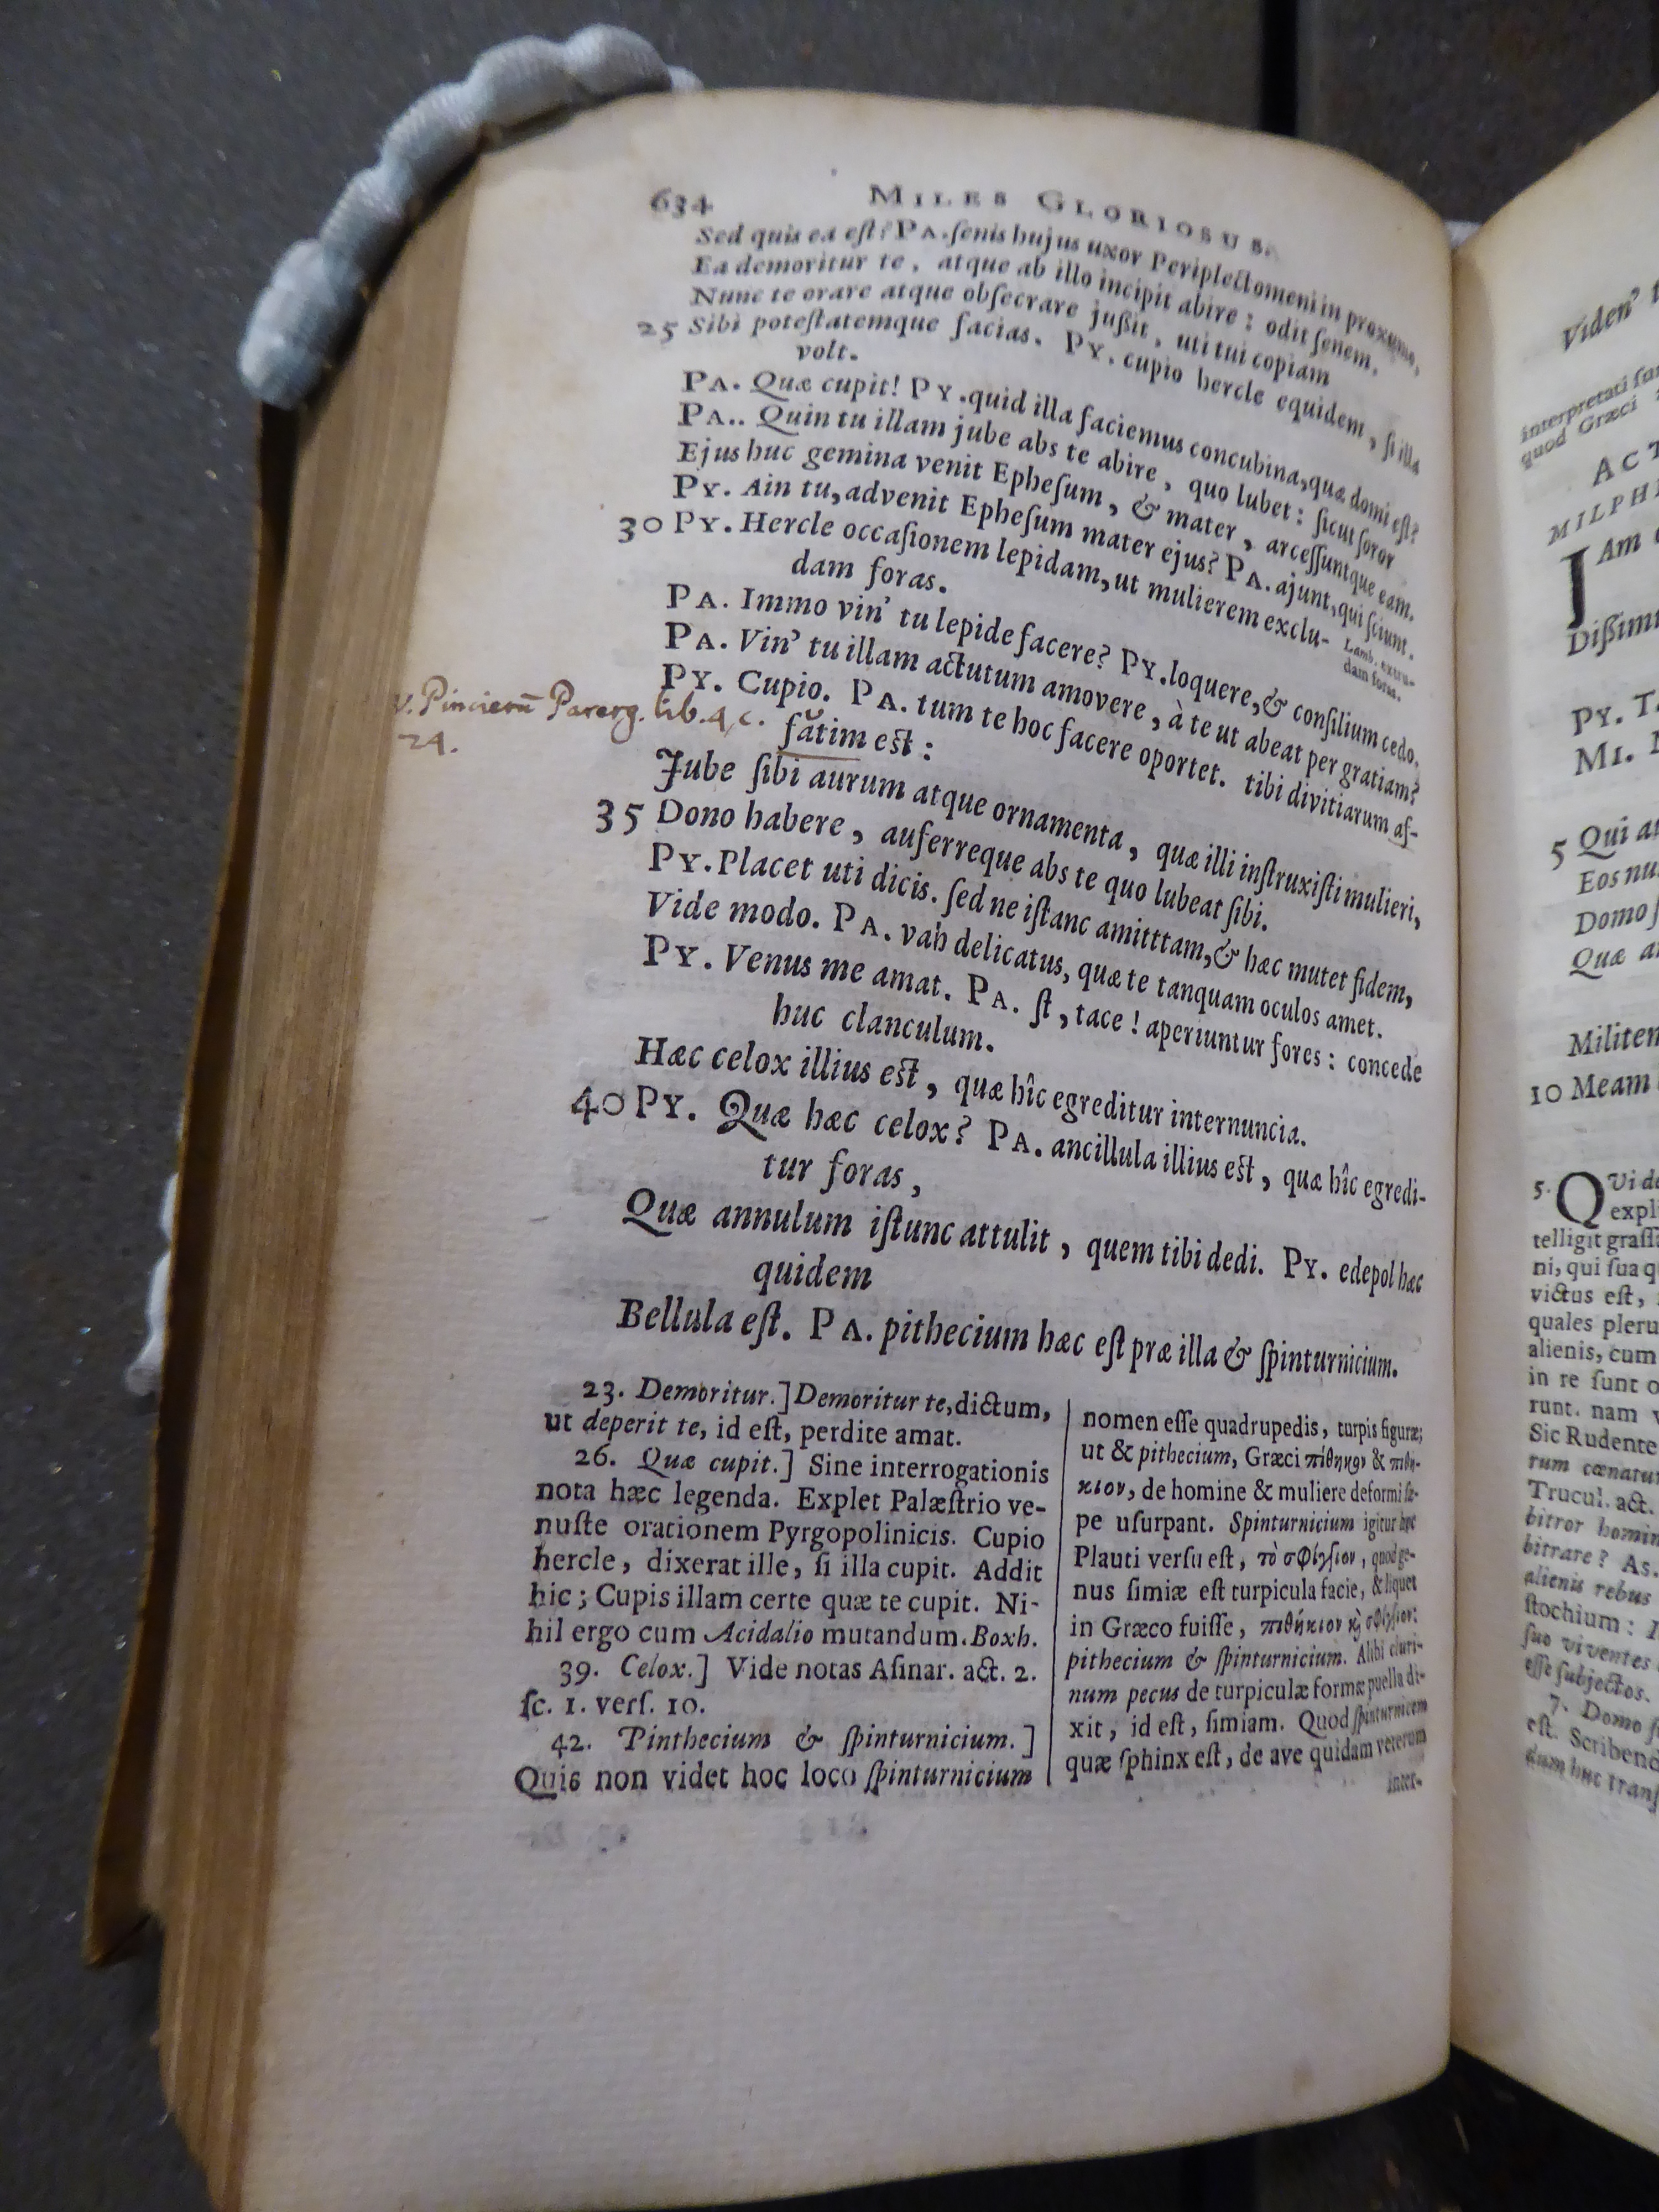 634 MILES GLORIOSUS.
Sed quis ea est? PA. senis hujus uxor Periplectomeni in proxumo,
Ea demoritur te, atque ab illo incipit abire: odit senem.
Nunc te orare atque obsecrare jußit, uti tui copiam
25 Sibi potestatemque facias. PY. cupio hercle equidem, si illa
volt.
PA. Quæ cupit! PY. quid illa faciemus concubina, quæ domi est?
PA.. Quin tu illam jube abs te abire, quo lubet: sicut soror
Ejus huc gemina venit Ephesum, & mater, arcessuntque eam.
PY. Ain tu, advenit Ephesum mater ejus? PA. ajunt, qui sciunt.
30 PY. Hercle occasionem lepidam, ut mulierem exclu-
dam foras.
Lamb. extru-
dam foras.
PA. Immo vin' tu lepide facere? PY. loquere, & consilium cedo.
PA. Vin' tu illam actutum amovere, à te ut abeat per gratiam?
PY. Cupio. PA. tum te hoc facere oportet. tibi divitiarum af-
fătim est:
v. Pincierū Parerg. lib. 4, c.
24.
Jube sibi aurum atque ornamenta, quæ illi instruxisti mulieri,
35 Dono habere, auferreque abs te quo lubeat sibi.
PY. Placet uti dicis. sed ne istanc amitttam, & hæc mutet fidem,
Vide modo. PA. vah delicatus, quæ te tanquam oculos amet.
PY. Venus me amat. PA. st, tace! aperiuntur fores: concede
huc clanculum.
Hæc celox illius est, quæ hîc egreditur internuncia.
40 PY. Quæ hæc celox? PA. ancillula illius est, quæ hîc egredi-
tur foras,
Quæ annulum istunc attulit, quem tibi dedi. PY. edepol hæc
quidem
Bellula est. PA. pithecium hæc est præ illa & spinturnicium.
23. Demoritur.] Demoritur te, dictum,
ut deperit te, id est, perdite amat.
26. Quæ cupit.] Sine interrogationis
nota hæc legenda. Explet Palæstrio ve-
nuste orationem Pyrgopolinicis. Cupio
hercle, dixerat ille, si illa cupit. Addit
hic; Cupis illam certe quæ te cupit. Ni-
hil ergo cum Acidalio mutandum. Boxh.
39. Celox.] Vide notas Asinar. act. 2.
sc. 1. vers. 10.
42. Pinthecium & spinturnicium.]
Quis non videt hoc loco spinturnicium
nomen esse quadrupedis, turpis figuræ;
ut & pithecium, Græci πίθηκον & πιθή-
κιον, de homine & muliere deformi sæ-
pe usurpant. Spinturnicium igitur hoc
Plauti versu est, τὸ σφίγγιον, quod ge-
nus simiæ est turpicula facie, & liquet
in Græco fuisse, πιθήκιον καὶ σφίγγιον:
pithecium & spinturnicium. Alibi cluri-
num pecus de turpiculæ formæ puella di-
xit, id est, simiam. Quod spinturnicem
quæ sphinx est, de ave quidam veterum
inter-
Viden'
interpretati sun
quod Græci
ACT
MILPHI
JAm
Dißimi
PY. T.
MI.
5 Qui a
Eos nu
Domo
Quæ a
Militem
10 Meam
5. QVi de
expl
telligit grassa
ni, qui sua q
victus est,
quales pleru
alienis, cum
in re sunt
runt. nam
Sic Rudente
rum cœnatu
Trucul. act.
bitror homin
bitrare? As.
alienis rebus
stochium: I
suo viventes
esse subjectos.
7. Domo
est. Scribend
dum huc trans